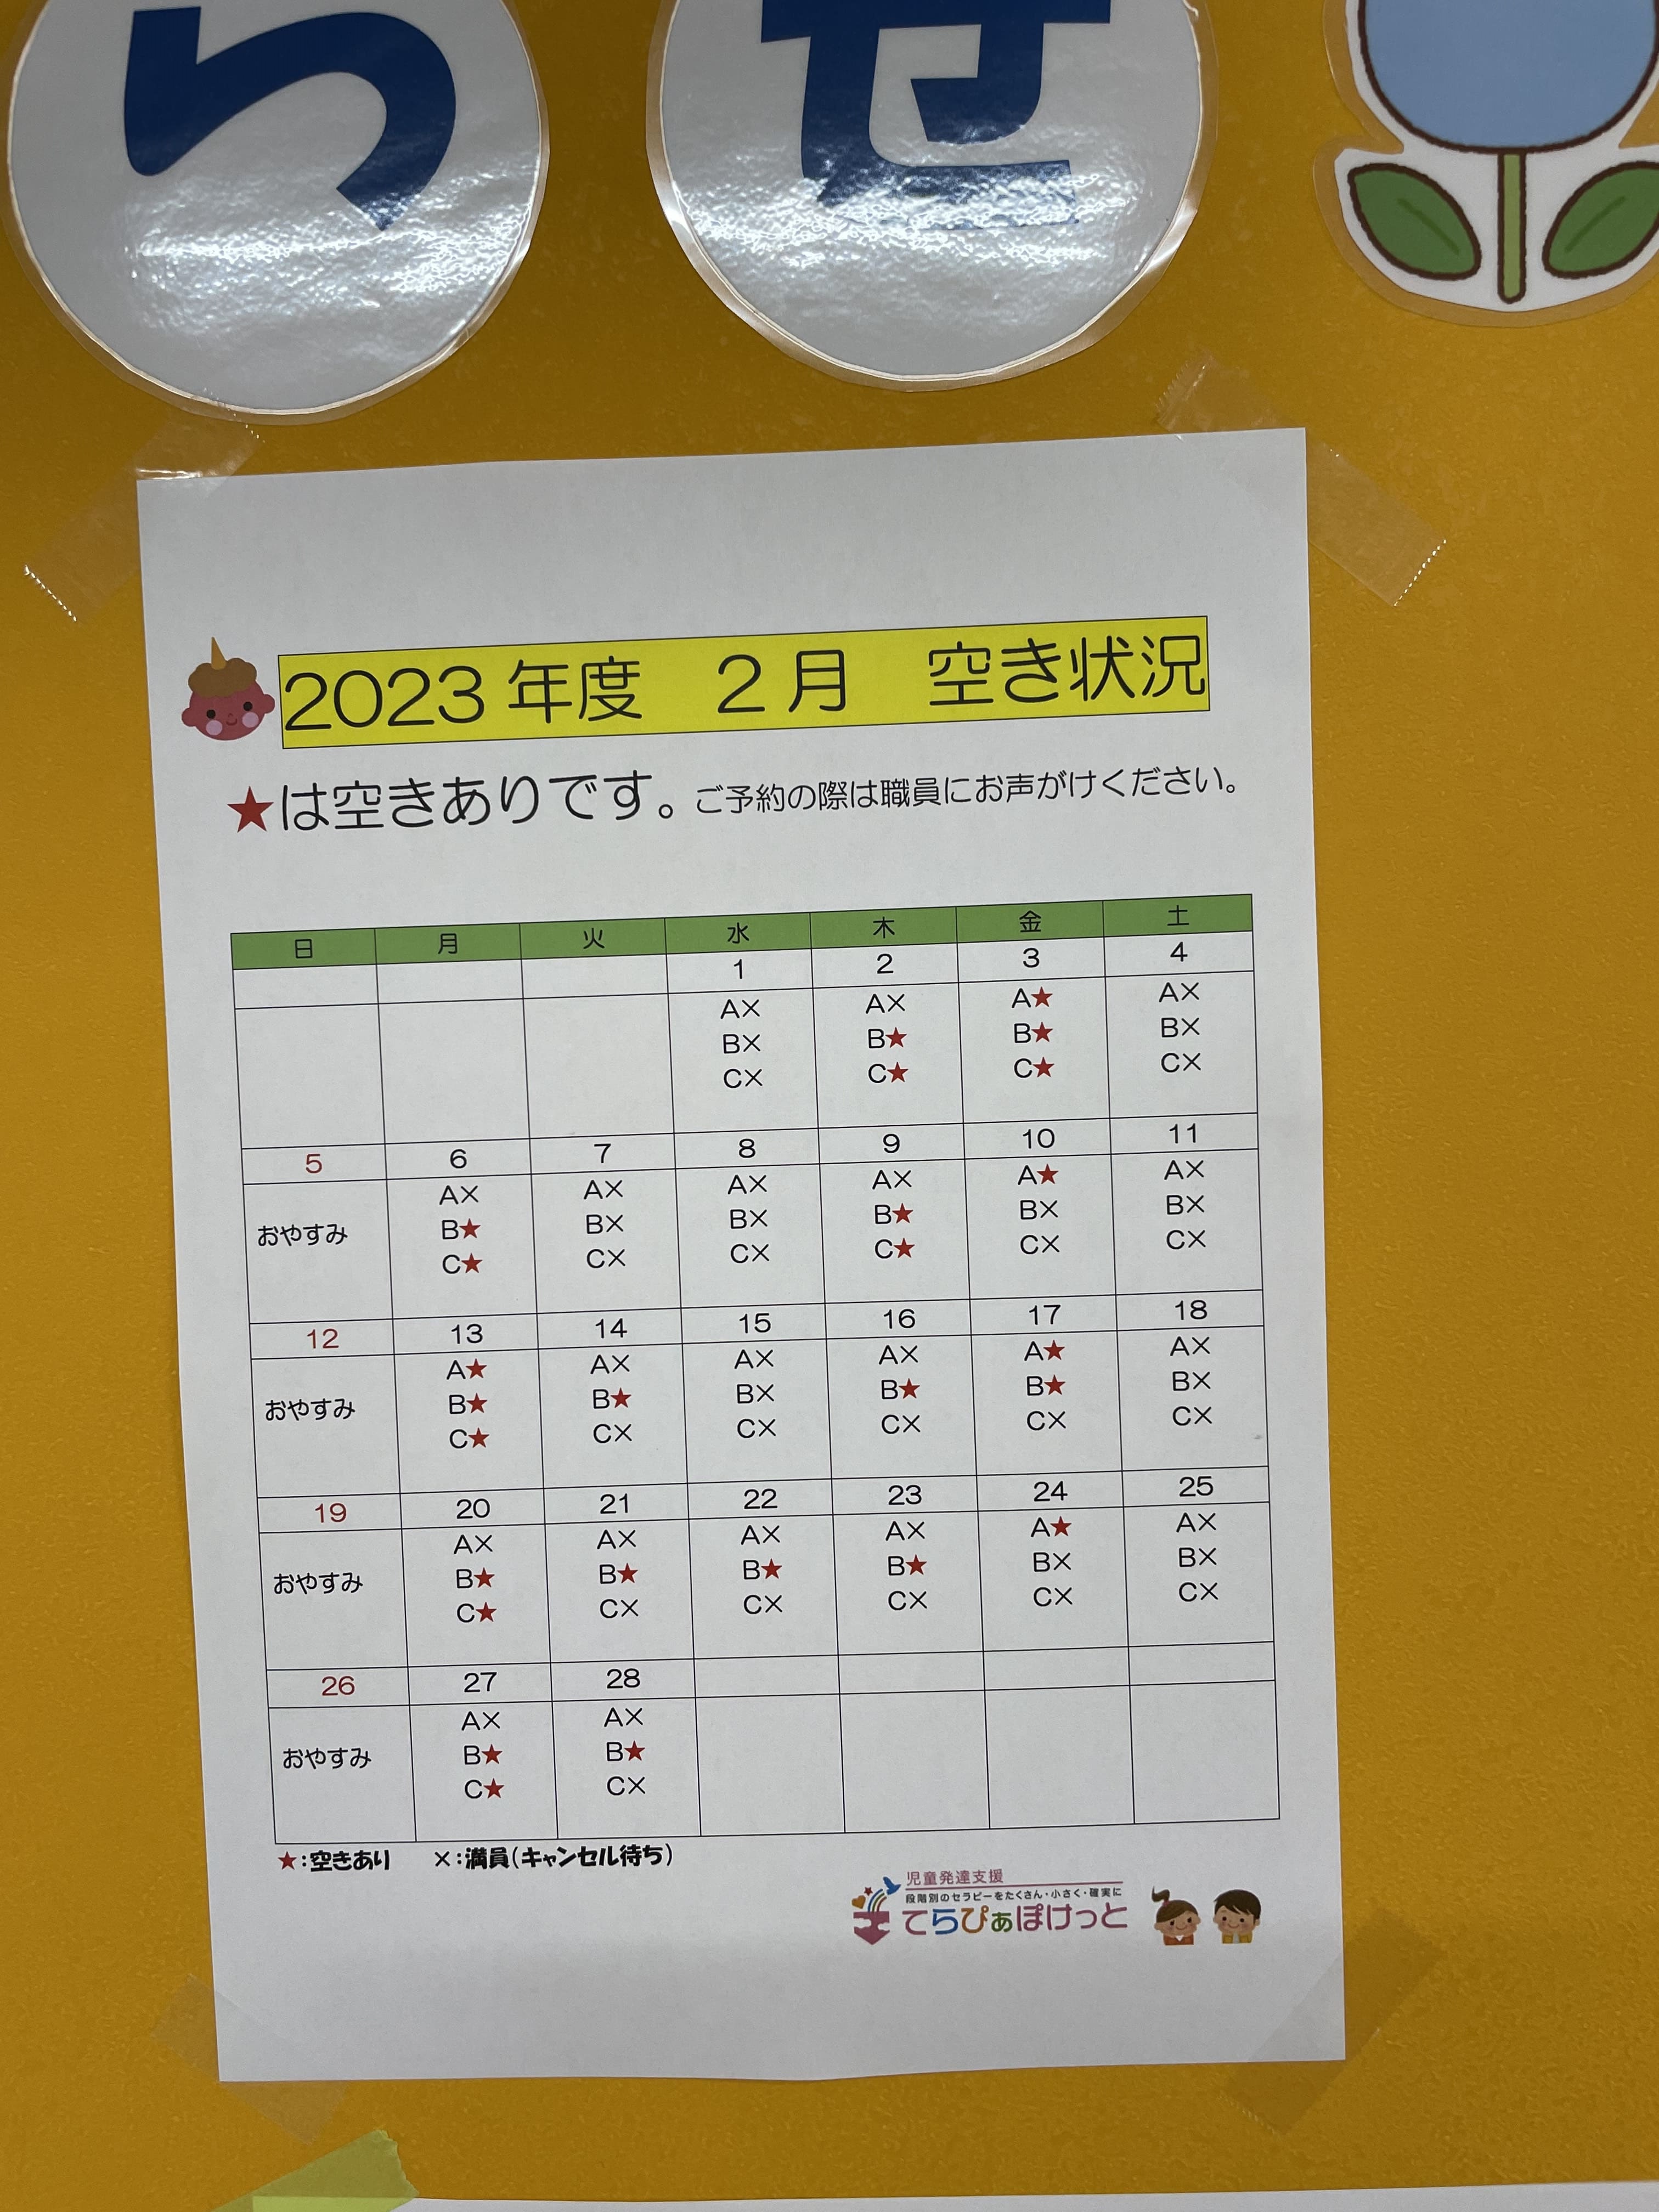 らせ
2023年度　2月　空き状況
★は空きありです。ご予約の際は職員にお声がけください。
日 月 火 水 木 金 土
1 2 3 4
A× A× A★ A×
B× B★ B★ B×
C× C★ C★ C×
5 6 7 8 9 10 11
A× A× A× A× A★ A×
おやすみ B★ B× B× B★ B× B×
C★ C× C× C★ C× C×
12 13 14 15 16 17 18
A★ A× A× A× A★ A×
おやすみ B★ B★ B× B★ B★ B×
C★ C× C× C× C× C×
19 20 21 22 23 24 25
A× A× A× A× A★ A×
おやすみ B★ B★ B★ B★ B× B×
C★ C× C× C× C× C×
26 27 28
A× A×
おやすみ B★ B★
C★ C×
★：空きあり　×：満員（キャンセル待ち）
児童発達支援
段階別のセラピーをたくさん・小さく・確実に
てらぴぁぽけっと